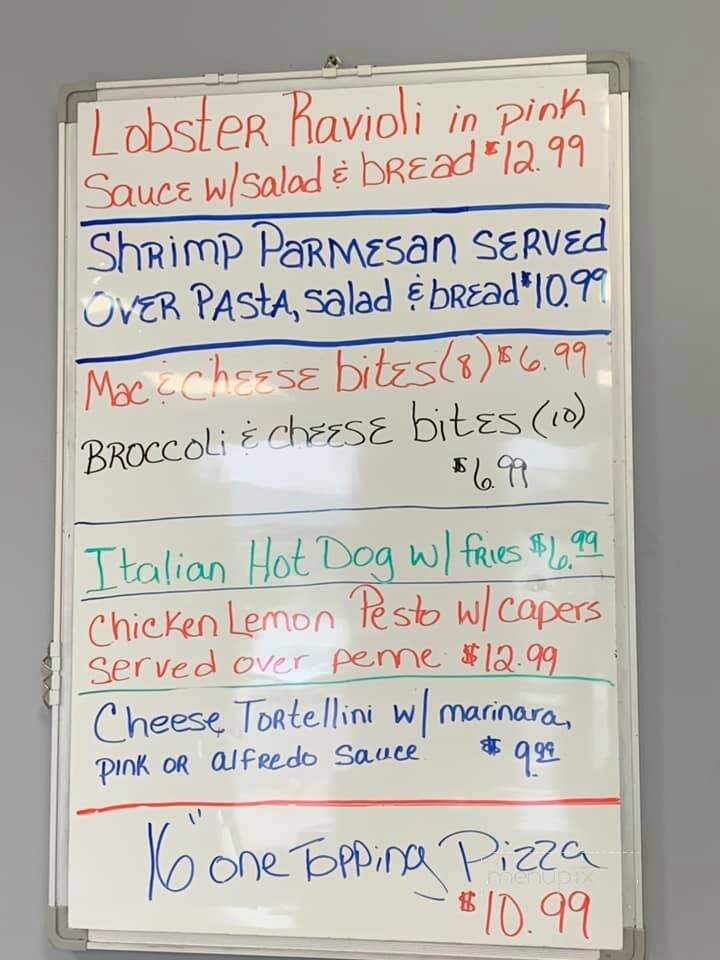 Lobster Ravioli in pink
Sauce w/salad & bread $12.99
Shrimp Parmesan served
over pasta, salad & bread $10.99
Mac & cheese bites (8) $6.99
Broccoli & cheese bites (10)
$6.99
Italian Hot Dog w/ fries $6.99
Chicken Lemon Pesto w/ capers
served over penne $12.99
Cheese Tortellini w/ marinara,
pink or alfredo sauce $9.99
16" one topping Pizza
menupix
$10.99